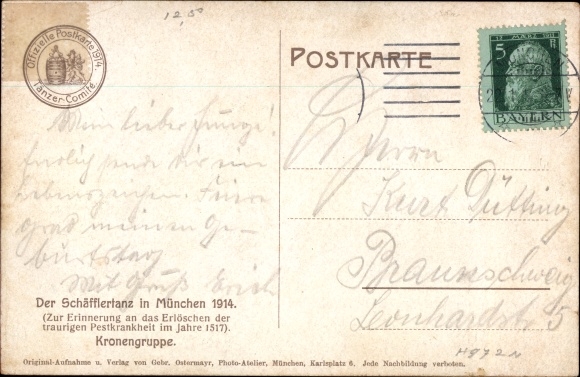 12,50
Offizielle Postkarte 1914.
Tänzer-Comité.
POSTKARTE
12. MÄRZ 1911
5
BAYERN
Mein lieber Junge!
Endlich sende dir ein
Lebenszeichen. Feiere
grad meinen Ge-
burtstag
Mit Gruß Erich
Herrn
Kurt Dütting
Braunschweig
Leonhardstr 5
Der Schäfflertanz in München 1914.
(Zur Erinnerung an das Erlöschen der
traurigen Pestkrankheit im Jahre 1517).
Kronengruppe.
Original-Aufnahme u. Verlag von Gebr. Ostermayr, Photo-Atelier, München, Karlsplatz 6. Jede Nachbildung verboten.